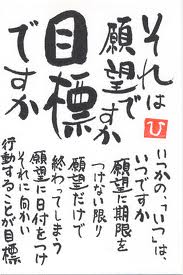 それは
願望で
すか
目標
ですか
ひ
いつかの、「いつ」は、
いつですか
願望に期限を
つけない限り
願望だけで
終わってしまう
願望に日付をつけ
それに向かい
行動することが目標